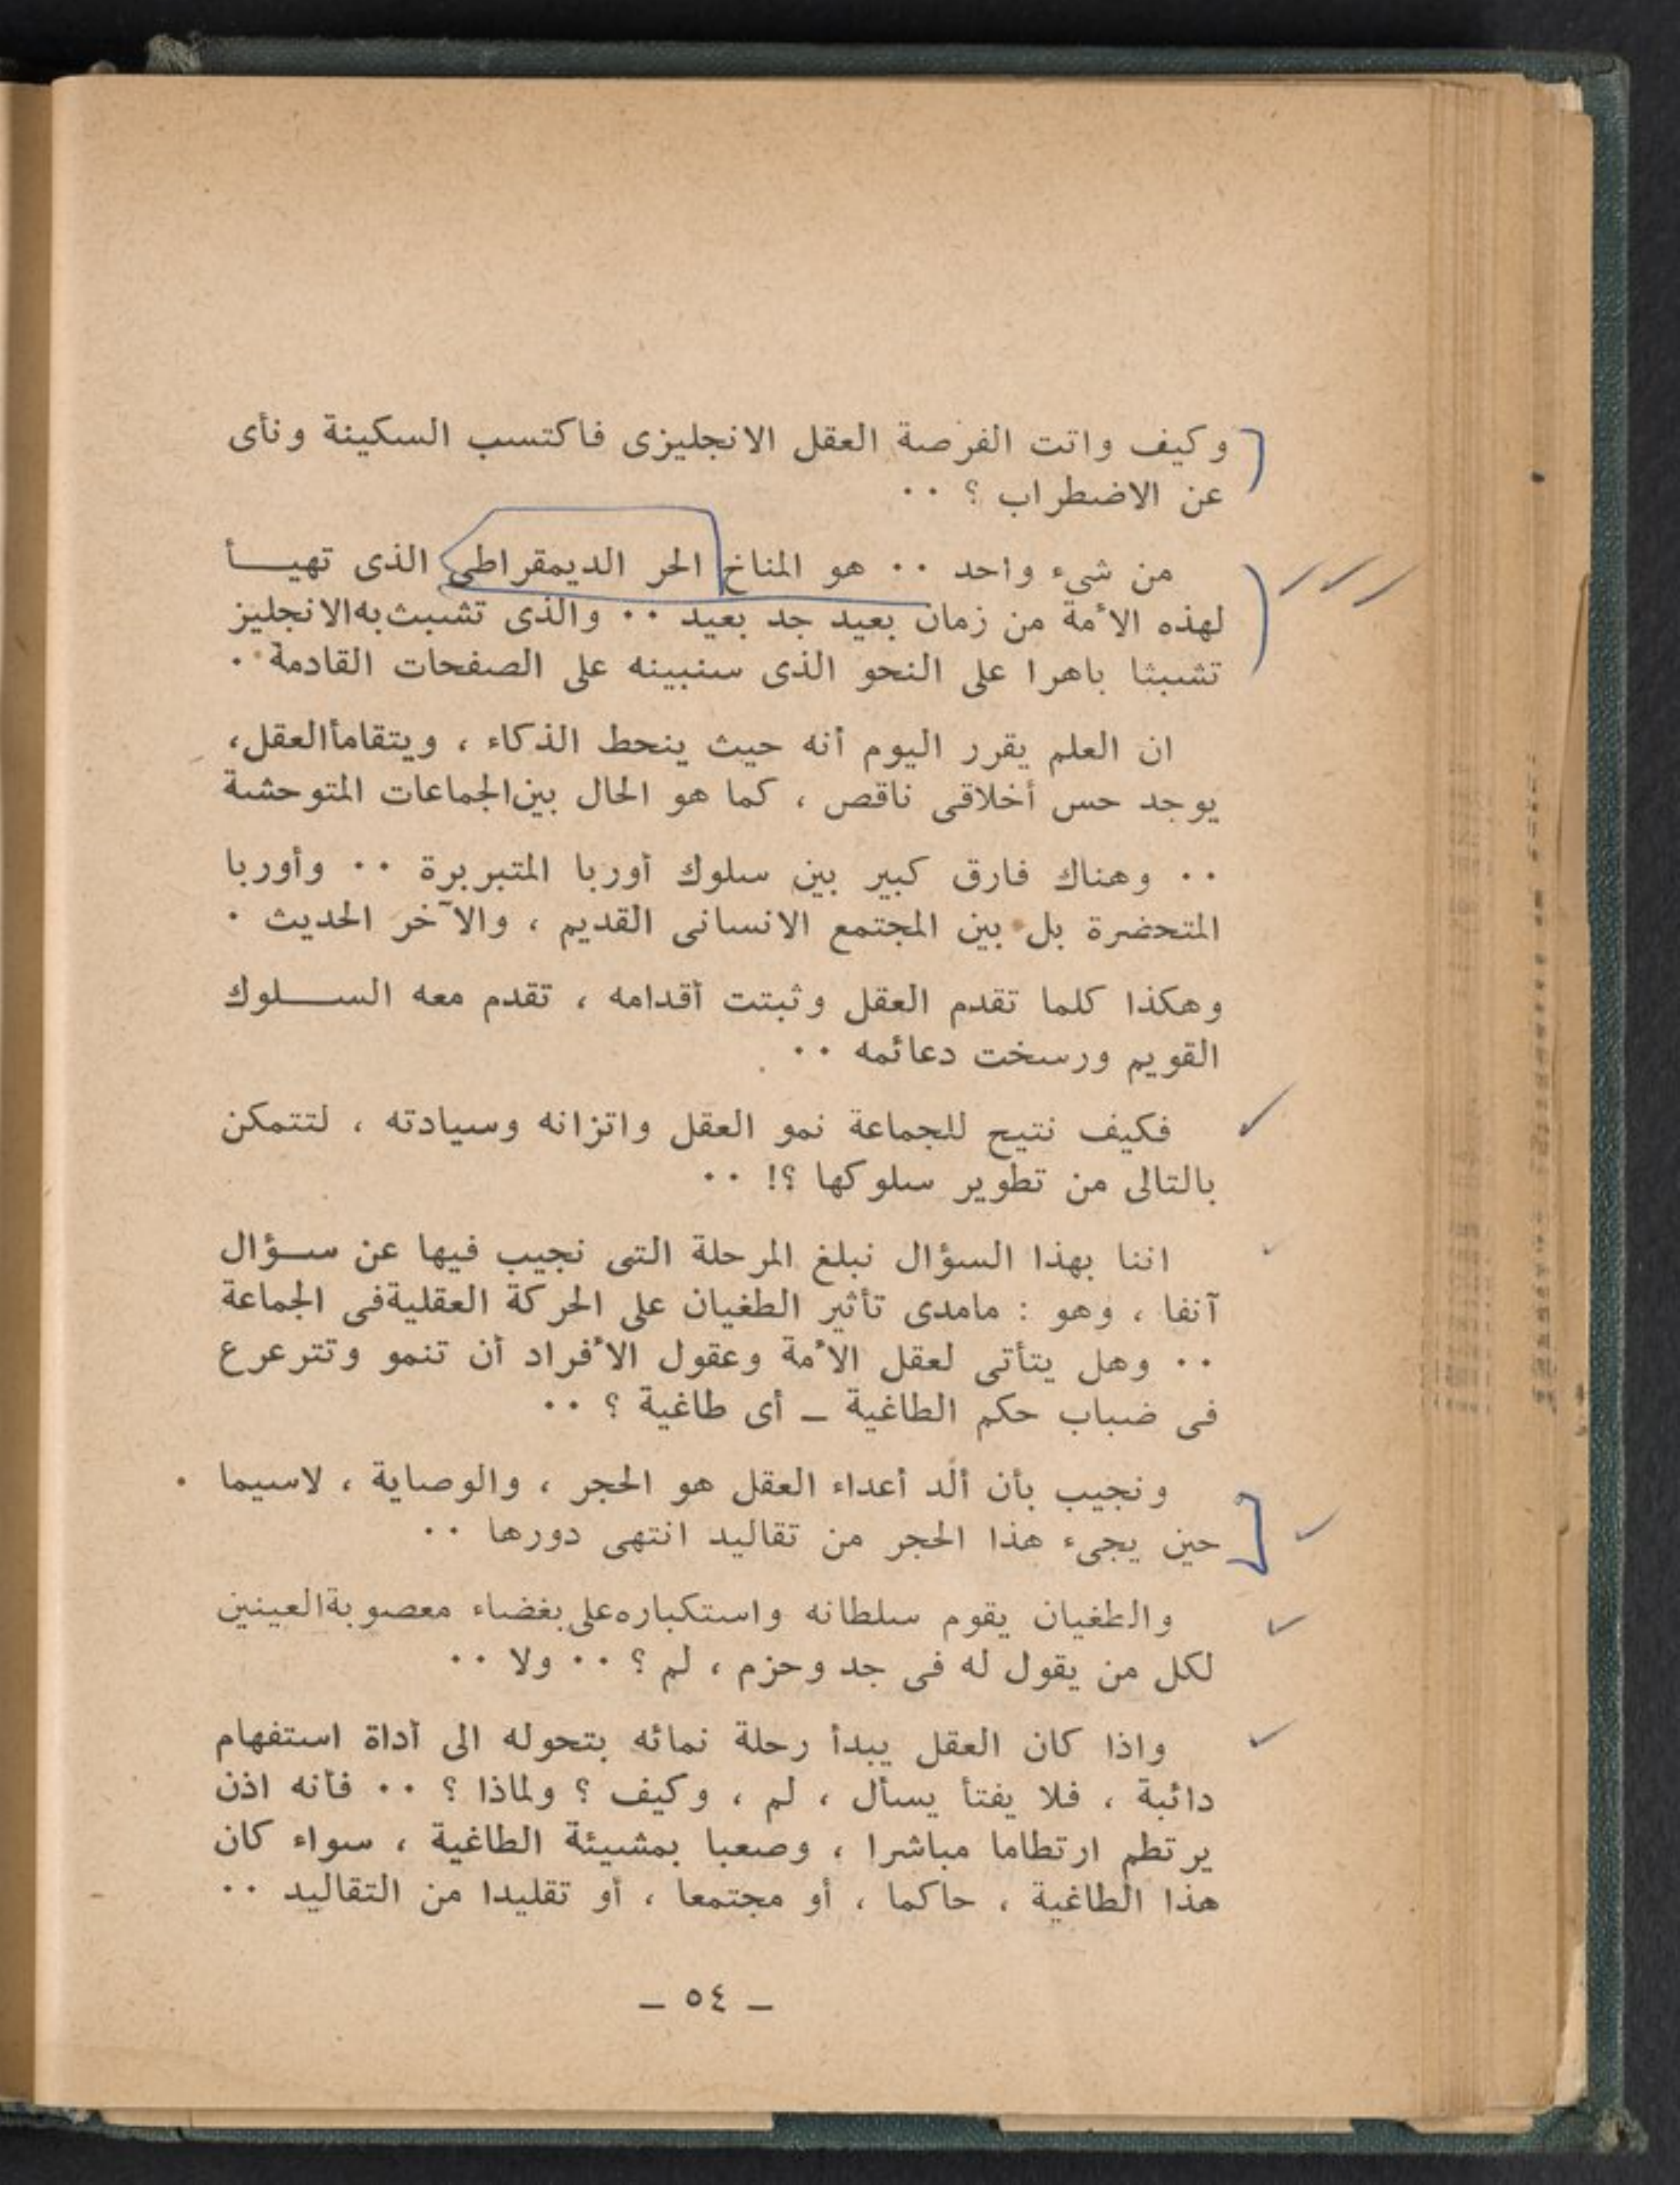 وكيف واتت الفرصة العقل الانجليزى فاكتسب السكينة ونأى
عن الاضطراب ؟ ..
من شىء واحد .. هو المناخ الحر الديمقراطى الذى تهيــأ
لهذه الأمة من زمان بعيد جد بعيد .. والذى تشبث به الانجليز
تشبثا باهرا على النحو الذى سنبينه على الصفحات القادمة .
ان العلم يقرر اليوم أنه حيث ينحط الذكاء ، ويتقامأ العقل،
يوجد حس أخلاقى ناقص ، كما هو الحال بين الجماعات المتوحشة
.. وهناك فارق كبير بين سلوك أوربا المتبربرة .. وأوربا
المتحضرة بل بين المجتمع الانسانى القديم ، والآخر الحديث .
وهكذا كلما تقدم العقل وثبتت أقدامه ، تقدم معه الســـلوك
القويم ورسخت دعائمه ..
فكيف نتيح للجماعة نمو العقل واتزانه وسيادته ، لتتمكن
بالتالى من تطوير سلوكها ؟! ..
اننا بهذا السؤال نبلغ المرحلة التى نجيب فيها عن ســؤال
آنفا ، وهو : مامدى تأثير الطغيان على الحركة العقلية فى الجماعة
.. وهل يتأتى لعقل الأمة وعقول الأفراد أن تنمو وتترعرع
فى ضباب حكم الطاغية ـ أى طاغية ؟ ..
ونجيب بأن ألد أعداء العقل هو الحجر ، والوصاية ، لاسيما
حين يجىء هذا الحجر من تقاليد انتهى دورها ..
والطغيان يقوم سلطانه واستكباره على بغضاء معصوبة العينين
لكل من يقول له فى جد وحزم ، لم ؟ .. ولا ..
واذا كان العقل يبدأ رحلة نمائه بتحوله الى أداة استفهام
دائبة ، فلا يفتأ يسأل ، لم ، وكيف ؟ ولماذا ؟ .. فأنه اذن
يرتطم ارتطاما مباشرا ، وصعبا بمشيئة الطاغية ، سواء كان
هذا الطاغية ، حاكما ، أو مجتمعا ، أو تقليدا من التقاليد ..
ـ ٥٤ ـ